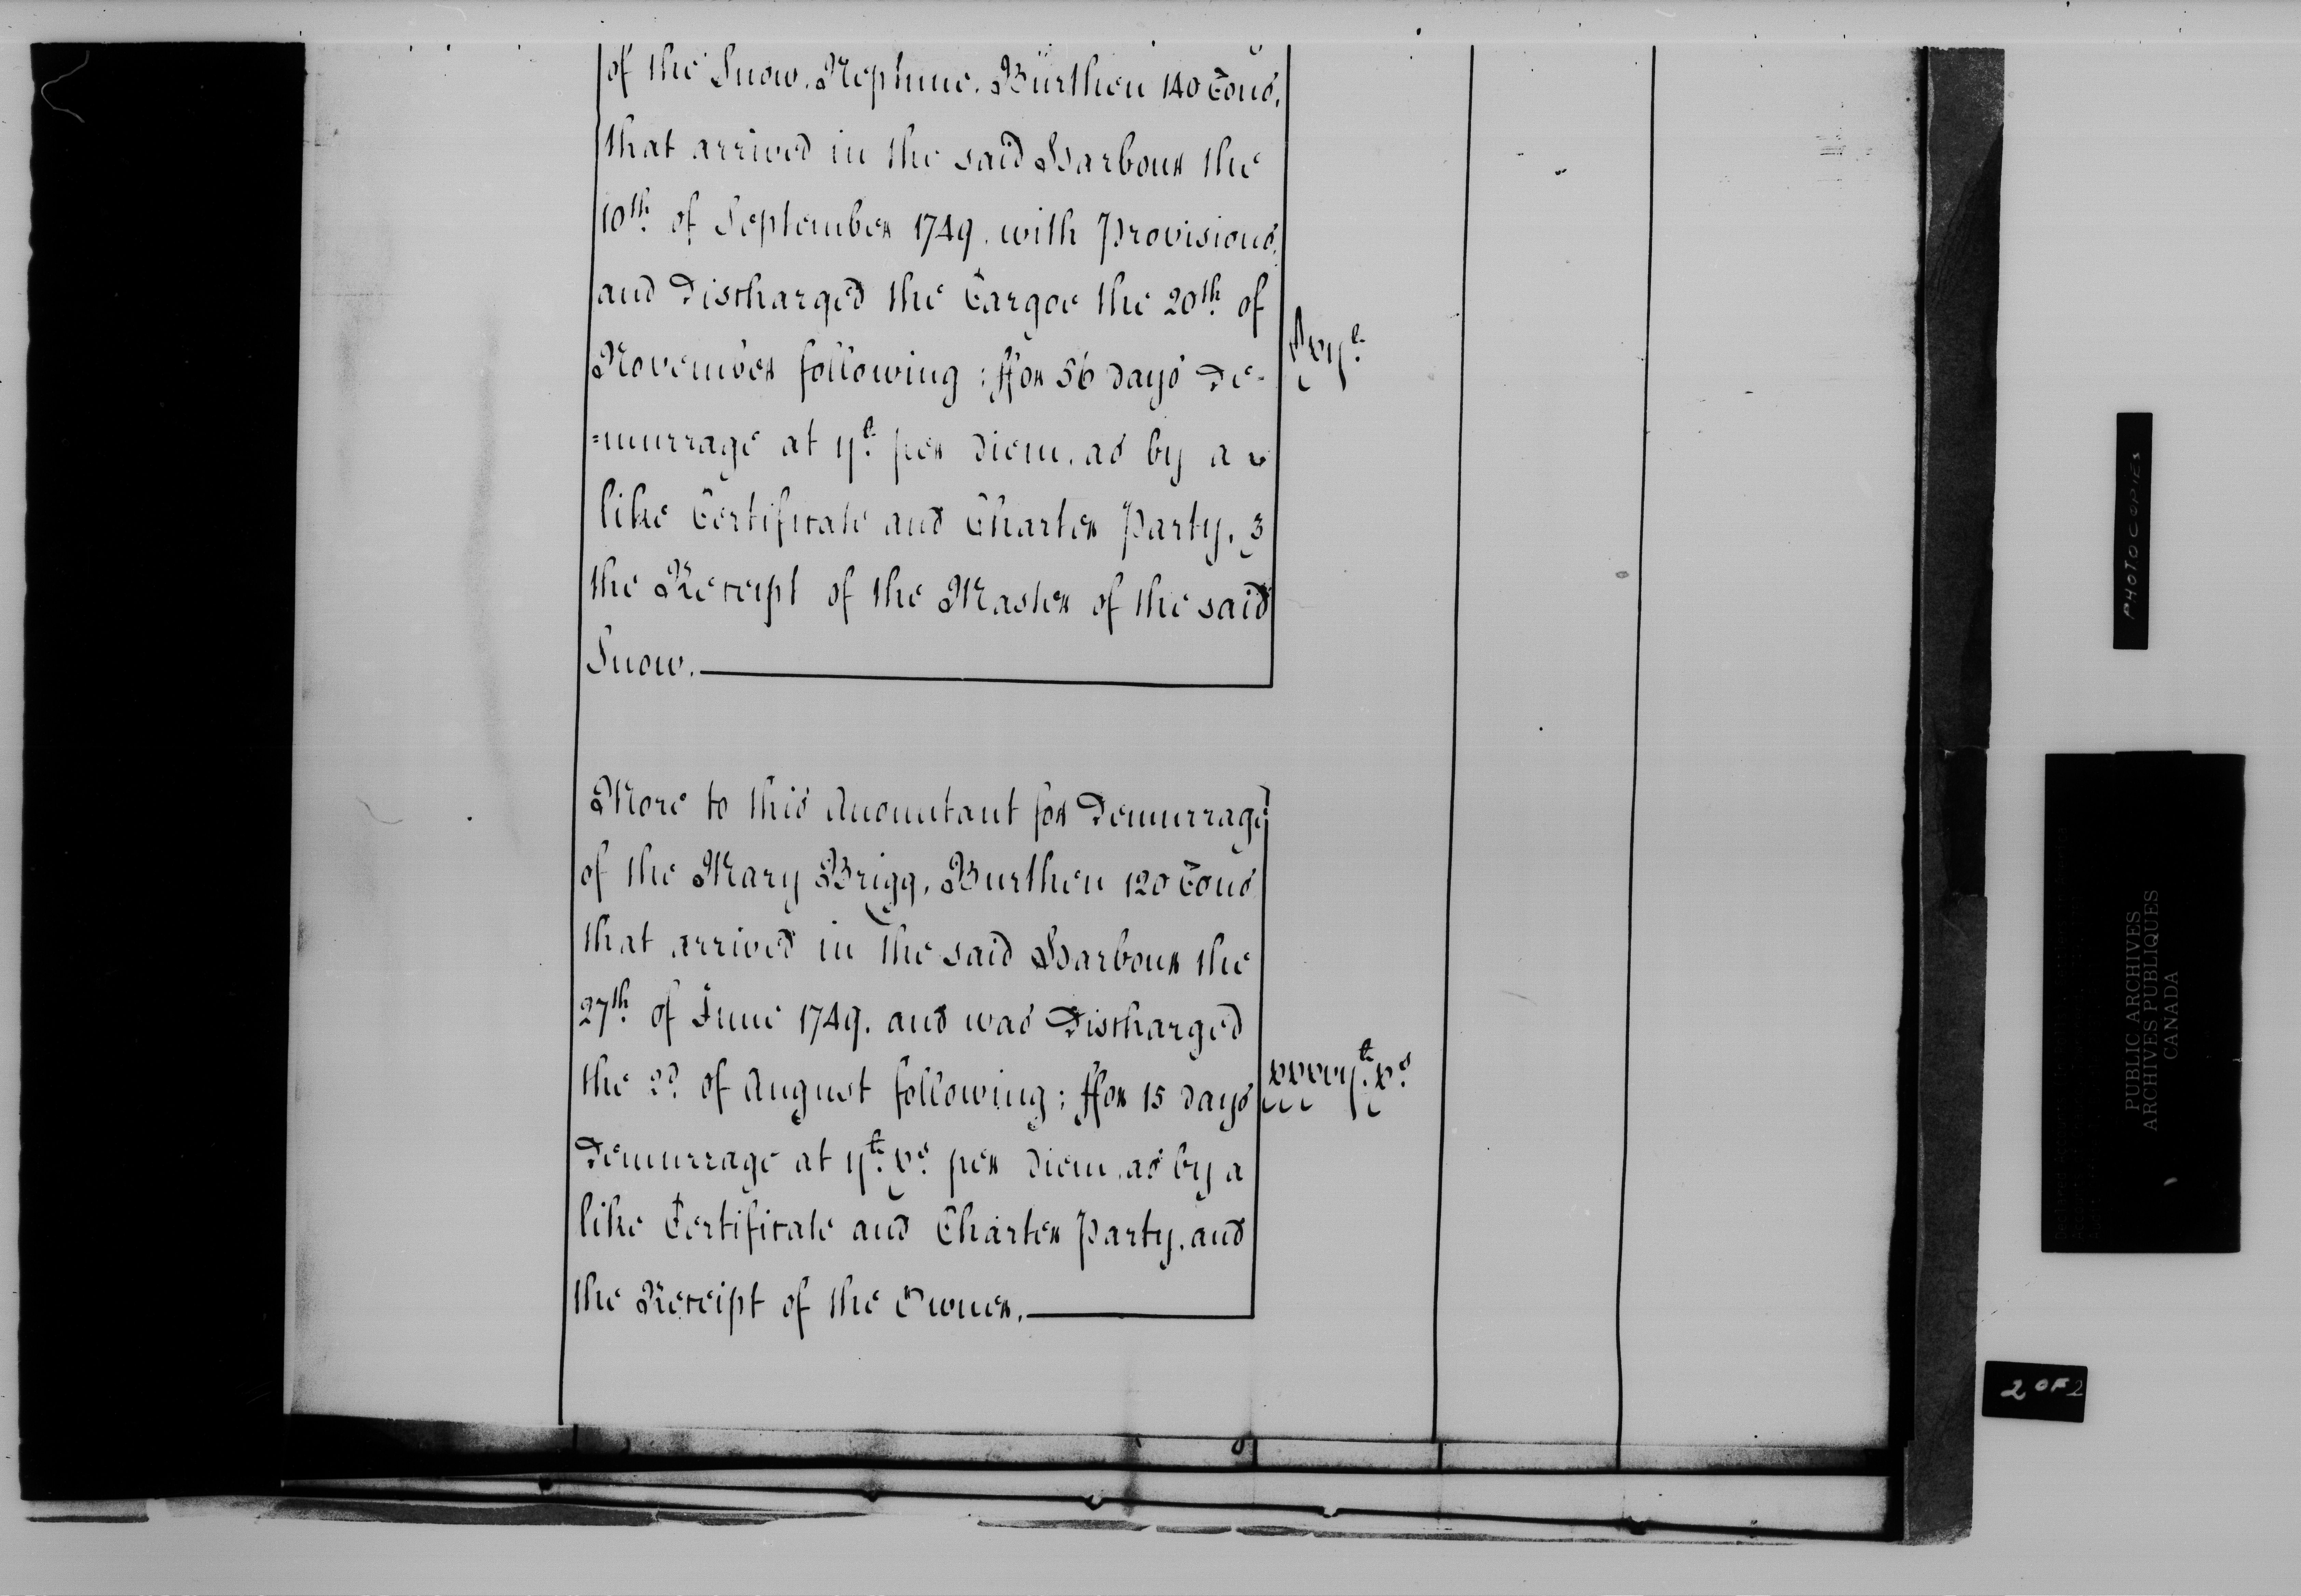 of the Snow, Neptune, Burthen 140 Tons,
that arrived in the said Harbour the
10th. of September 1749. with Provisions,
and Discharged the Cargoe the 20th. of
November following; ffor 56 days De-
=murrage at ijl. per Diem, as by a
like Certificate and Charter Party, &
the Receipt of the Master of the said
Snow.
Cxijl.
More to this Accountant for Demurrage
of the Mary Brigg, Burthen 120 Tons
that arrived in the said Harbour the
27th. of June 1749. and was Discharged
the 2d. of August following; ffor 15 days
Demurrage at ijl. xs. per Diem, as by a
like Certificate and Charter Party, and
the Receipt of the Owner.
xxxvijl. xs.
PHOTOCOPIES
PUBLIC ARCHIVES
ARCHIVES PUBLIQUES
CANADA
2 OF 2